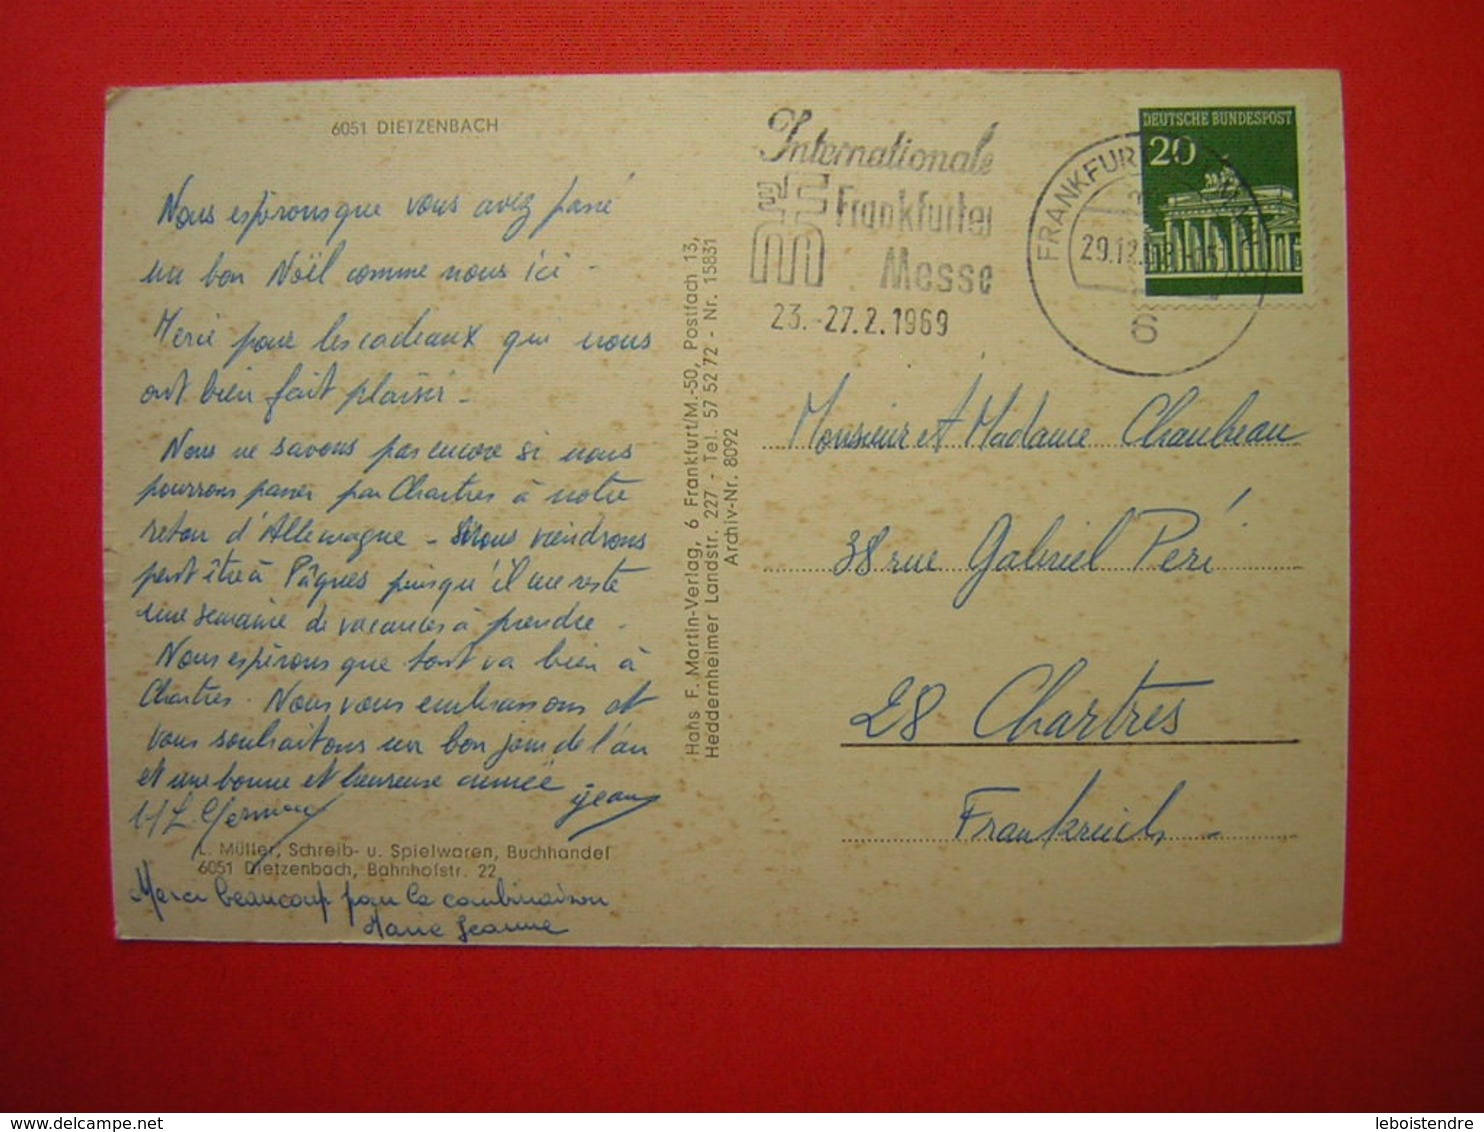 6051 DIETZENBACH
Nous espérons que vous avez passé
un bon Noël comme nous ici -
Merci pour les cadeaux qui nous
ont bien fait plaisir -
Nous ne savons pas encore si nous
pourrons passer par Chartres à notre
retour d'Allemagne - Nous viendrons
peut être à Pâques puisqu'il me reste
une semaine de vacances à prendre -
Nous espérons que tout va bien à
Chartres - Nous vous embrassons et
vous souhaitons un bon jour de l'an
et une bonne et heureuse année
Jean
L. Müller, Schreib- u. Spielwaren, Buchhandel
6051 Dietzenbach, Bahnhofstr. 22
Merci beaucoup pour la combinaison
Marie Jeanne
Hans F. Martin-Verlag, 6 Frankfurt/M.-50, Postfach 13,
Heddernheimer Landstr. 227 - Tel. 57 52 72 - Nr. 15831
Archiv-Nr. 8092
Internationale
Frankfurter
Messe
23.-27.2.1969
FRANKFURT
29.12.68
6
DEUTSCHE BUNDESPOST
20
Monsieur et Madame Chaubeau
38 rue Gabriel Péri
28 Chartres
Frankreich -
leboistendre